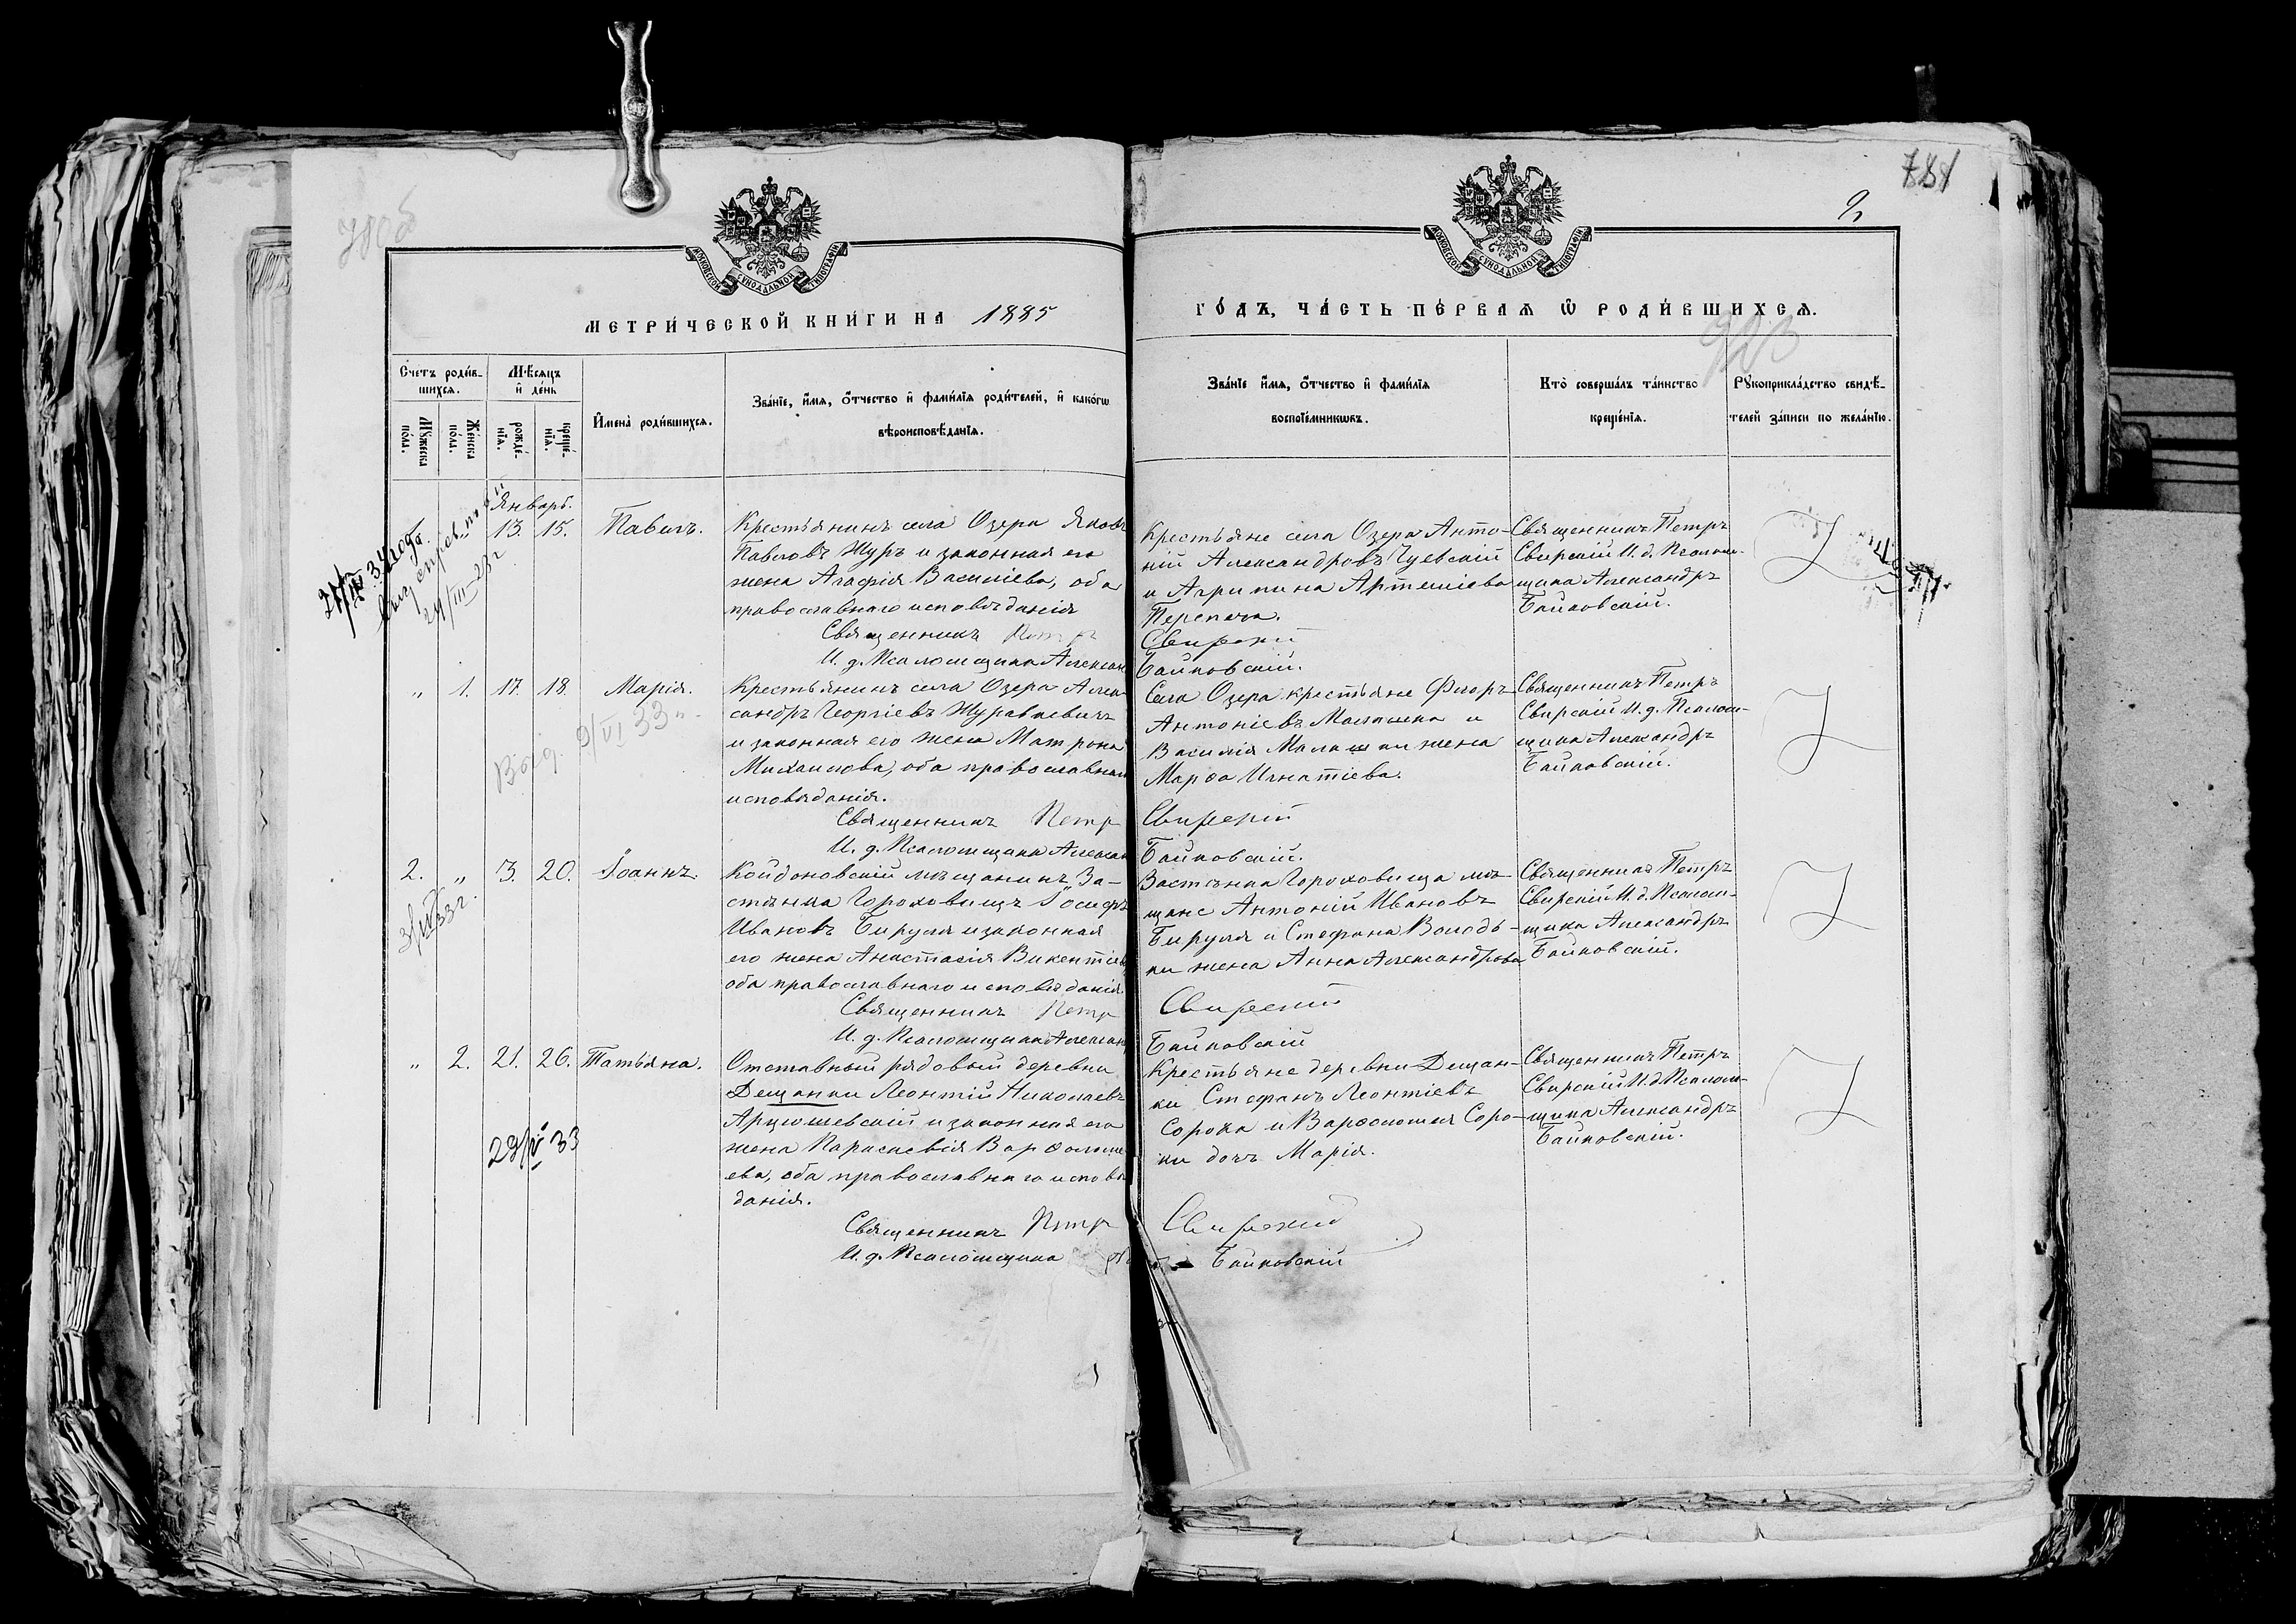 781
2
МОСКОВСКОЙ СУНОДАЛЬНОЙ ТИПОГРАФІИ
МОСКОВСКОЙ СУНОДАЛЬНОЙ ТИПОГРАФІИ
МЕТРИ́ЧЕСКОЙ КНИ́ГИ НА 1885
ГО́ДЪ, ЧА́СТЬ ПЕ́РВАЯ Ѿ РОДИ́ВШИХСЯ.
Счетъ роди́в-
шихся.
Мѣсяцъ
и҆ де́нь
Му́жеска
по́ла.
Же́нска
по́ла.
рожде́-
нїя.
креще́-
нїя.
И҆мена̀ роди́вшихся.
Зва́нїе, и҆́мя, ѻ҆́тчество и҆ фамилїя роди́телей, и҆ како́гѡ
вѣроисповѣ́данїя.
Зва́нїе и҆́мя, ѻ҆́тчество и҆ фамилїя
воспрїе́мникѡвъ.
Кто̀ соверша́лъ та́инство
креще́нїя.
Рꙋкоприкла́дство свидѣ́-
телей за́писи по жела́нїю.
Январь.
" 13. 15. Павелъ.
Крестьянинъ села Озера Яковъ
Павловъ Журъ и законная его
жена Агафія Василіева, оба
православнаго исповѣданія
Священникъ Петръ
И. д. Псаломщика Алексан
Крестьяне села Озера Анто-
ній Александровъ Чуевскій
и Агрипина Артеміева
Перепеча.
Свирскій
Байковскій.
Священникъ Петръ
Свирскій И. д. Псалом-
щика Александръ
Байковскій.
" 1. 17. 18. Марія.
Крестьянинъ села Озера Алек-
сандръ Георгіевъ Журавлевичъ
и законная его жена Матрона
Михаилова, оба православнаго
исповѣданія.
Священникъ Петръ
И. д. Псаломщика Алексан
9/VI 33
Села Озера крестьяне Флоръ
Антоніевъ Малашка и
Василія Малашки жена
Марѳа Игнатіева.
Свирскій
Байковскій.
Священникъ Петръ
Свирскій И. д. Псалом-
щика Александръ
Байковскій.
2. " 3. 20. Іоаннъ.
Койдоновскій мѣщанинъ За-
стѣнка Гороховищъ Іосифъ
Ивановъ Бируля и законная
его жена Анастасія Викентіева
оба православнаго исповѣданія.
Священникъ Петръ
И. д. Псаломщика Алексан
Застѣнка Гороховища мѣ-
щане Антоній Ивановъ
Бируля и Стефана Володь-
ки жена Анна Александрова
Свирскій
Байковскій
Священникъ Петръ
Свирскій И. д. Псалом-
щика Александръ
Байковскій.
" 2. 21. 26. Татьяна.
Отставный рядовый деревни
Дещанки Леонтій Николаевъ
Арцюшевскій и законная его
жена Параскевія Варѳоломе
ева, оба православнаго исповѣ
данія.
Священникъ Петръ
И. д. Псаломщика
29/V 33
Крестьяне деревни Дещан-
ки Стефанъ Леонтіевъ
Сорока и Варѳоломея Соро-
ки дочь Марія.
Свирскій
Байковскій
Священникъ Петръ
Свирскій И. д. Псалом-
щика Александръ
Байковскій.